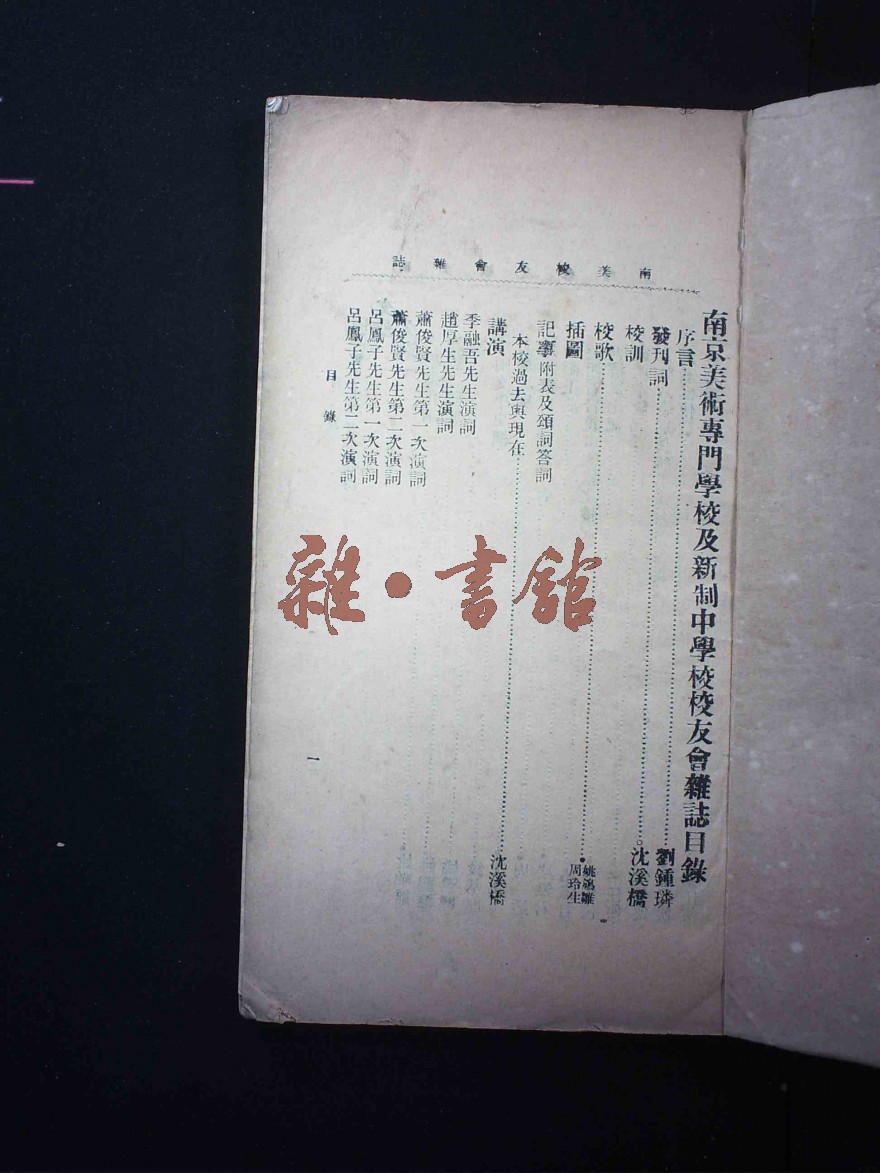 南美校友會雜誌
南京美術專門學校及新制中學校校友會雜誌目錄
序言……劉鍾璘
發刊詞……沈溪橋
校訓
校歌……姚鴻雛 周玲生
插圖
記事附表及頌詞答詞
本校過去與現在……沈溪橋
講演
季融吾先生演詞
趙厚生先生演詞
蕭俊賢先生第一次演詞
蕭俊賢先生第二次演詞
呂鳳子先生第一次演詞
呂鳳子先生第二次演詞
目錄
一
雜·書館